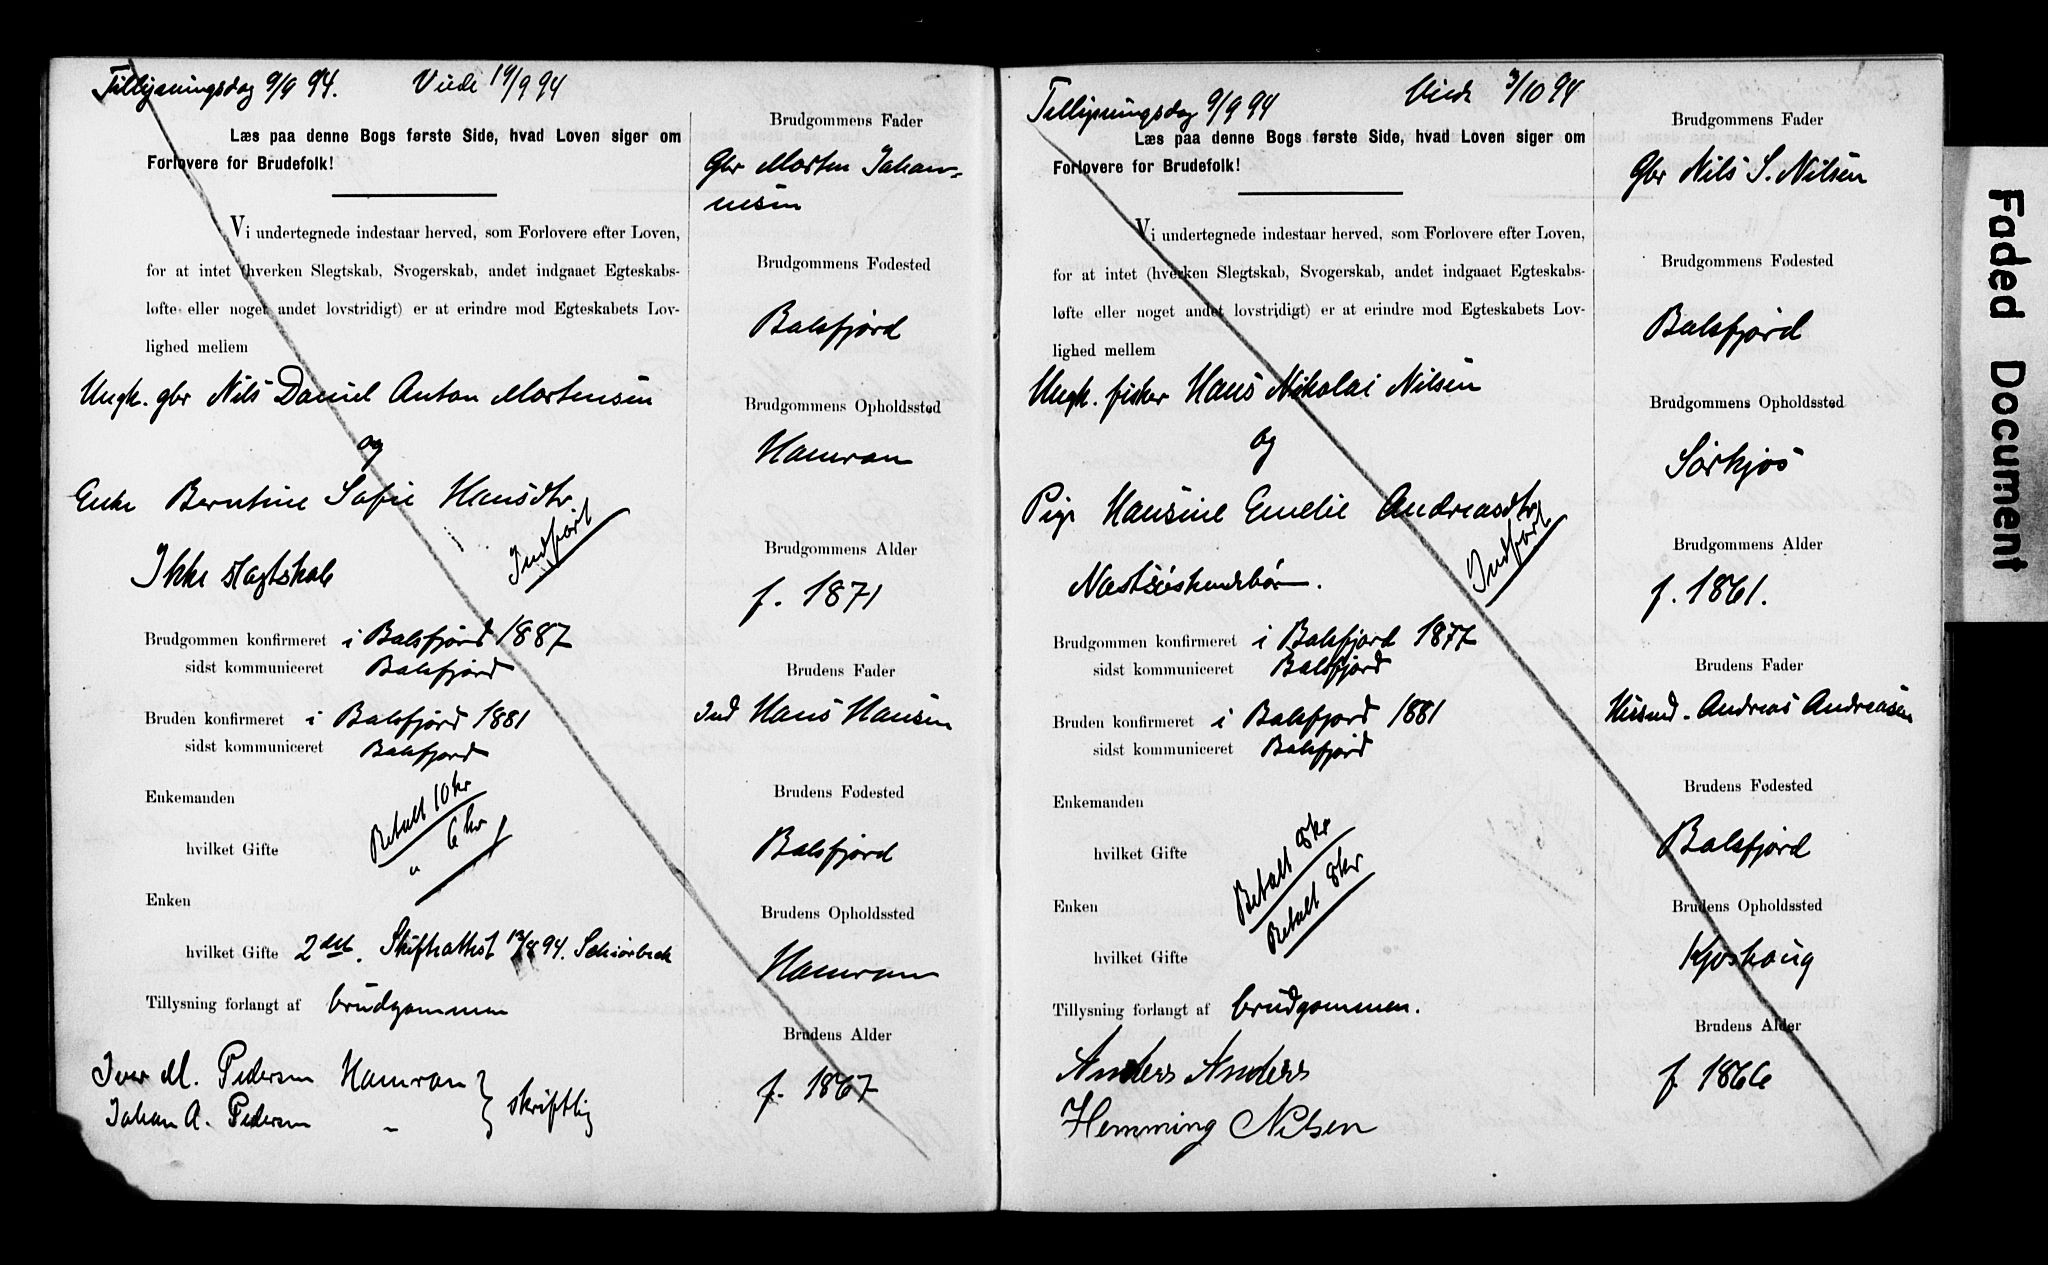 Tillysningsdag 9/9 94. Viede 19/9 94
Læs paa denne Bogs første Side, hvad Loven siger om
Forlovere for Brudefolk!
Vi undertegnede indestaar herved, som Forlovere efter Loven,
for at intet (hverken Slegtskab, Svogerskab, andet indgaaet Egteskabs-
løfte eller noget andet lovstridigt) er at erindre mod Egteskabets Lov-
lighed mellem
Ungk. gbr Nils Daniel Anton Mortensen
og
Enke Berntine Sofie Hansdtr
Indført
Ikke slægtskab
Brudgommen konfirmeret i Balsfjord 1887
sidst kommuniceret Balsfjord
Bruden konfirmeret i Balsfjord 1881
sidst kommuniceret Balsfjord
Enkemanden
Betalt 10 kr
" 6 kr
hvilket Gifte
Enken
hvilket Gifte 2det. Skifteattest 12/8 94. Schiørbeck
Tillysning forlangt af brudgommen
Iver M. Pedersen Hamran
Johan A. Pedersen –
skriftlig
Brudgommens Fader
Gbr Morten Johan-
nesen
Brudgommens Fødested
Balsfjord
Brudgommens Opholdssted
Hamran
Brudgommens Alder
f. 1871
Brudens Fader
Ind Hans Hansen
Brudens Fødested
Balsfjord
Brudens Opholdssted
Hamran
Brudens Alder
f. 1867
Tillysningsdag 9/9 94 Viede 3/10 94
Læs paa denne Bogs første Side, hvad Loven siger om
Forlovere for Brudefolk!
Vi undertegnede indestaar herved, som Forlovere efter Loven,
for at intet (hverken Slegtskab, Svogerskab, andet indgaaet Egteskabs-
løfte eller noget andet lovstridigt) er at erindre mod Egteskabets Lov-
lighed mellem
Ungk. fisker Hans Nikolai Nilsen
og
Pige Hansine Emelie Andreasdtr
Indført
Næstsøskendebørn.
Brudgommen konfirmeret i Balsfjord 1877
sidst kommuniceret Balsfjord
Bruden konfirmeret i Balsfjord 1881
sidst kommuniceret Balsfjord
Enkemanden
Betalt 8 kr
hvilket Gifte
Betalt 8 kr
Enken
hvilket Gifte
Tillysning forlangt af brudgommen.
Anders Anders
Hemming Nilsen
Brudgommens Fader
Gbr Nils S. Nilsen
Brudgommens Fødested
Balsfjord
Brudgommens Opholdssted
Sørkjos
Brudgommens Alder
f. 1861.
Brudens Fader
Husmd. Andreas Andreasen
Brudens Fødested
Balsfjord
Brudens Opholdssted
Kjoshaug
Brudens Alder
f. 1866
Faded Document